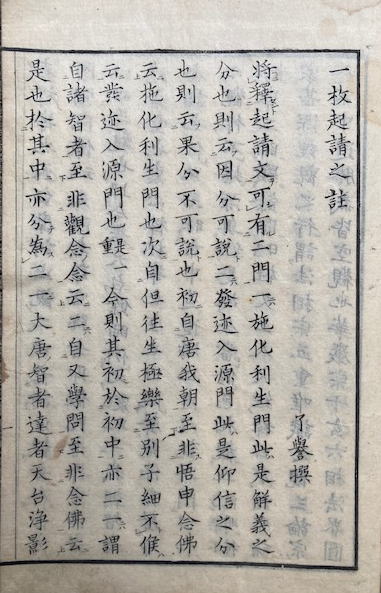 一枚起請之註
了譽撰
將釋起請文可有二門一施化利生門此是解義之
分也則云因分可說二發迹入源門此是仰信之分
也則云果分不可說也初自唐我朝至非悟申念佛
云施化利生門也次自但往生極樂至別子細不候
云發迹入源門也重是一今則其初於初中亦二一謂
自諸智者至非觀念念云二自又學問至非念佛云
是也於其中亦分為二一大唐智者達者天台淨影